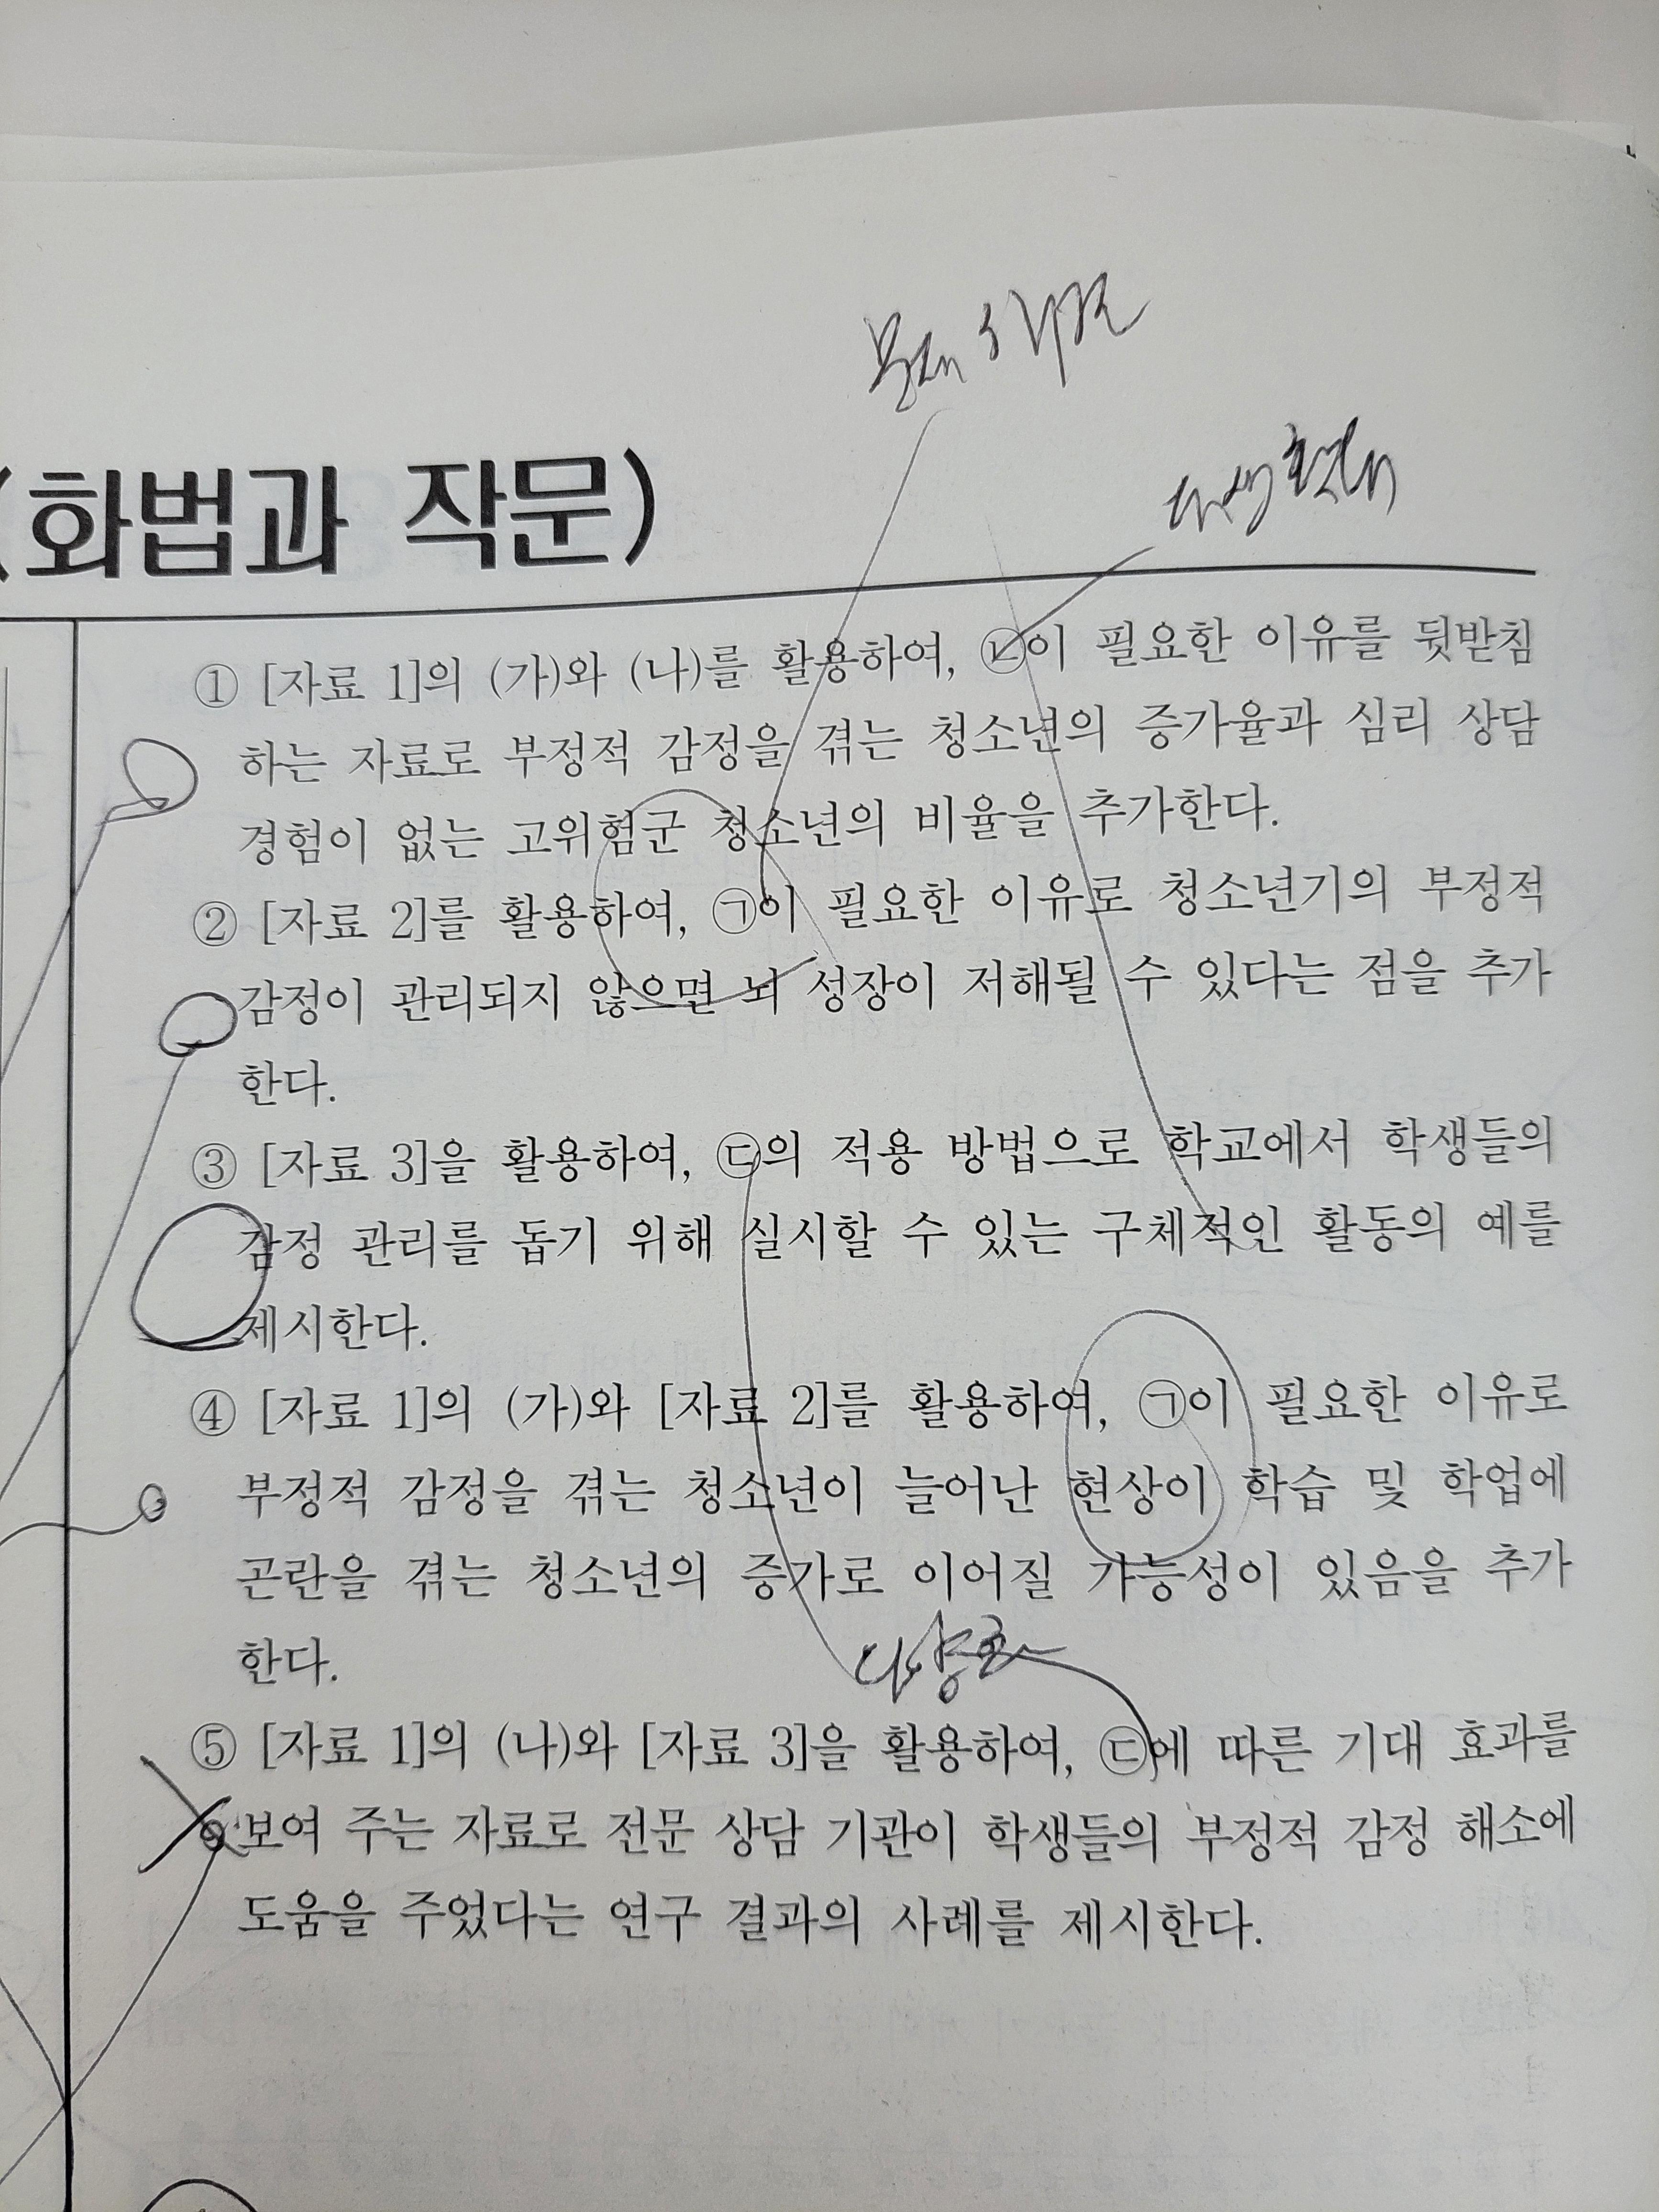 (화법과 작문)
① [자료 1]의 (가)와 (나)를 활용하여, ㉡이 필요한 이유를 뒷받침
하는 자료로 부정적 감정을 겪는 청소년의 증가율과 심리 상담
경험이 없는 고위험군 청소년의 비율을 추가한다.
② [자료 2]를 활용하여, ㉠이 필요한 이유로 청소년기의 부정적
감정이 관리되지 않으면 뇌 성장이 저해될 수 있다는 점을 추가
한다.
③ [자료 3]을 활용하여, ㉢의 적용 방법으로 학교에서 학생들의
감정 관리를 돕기 위해 실시할 수 있는 구체적인 활동의 예를
제시한다.
④ [자료 1]의 (가)와 [자료 2]를 활용하여, ㉠이 필요한 이유로
부정적 감정을 겪는 청소년이 늘어난 현상이 학습 및 학업에
곤란을 겪는 청소년의 증가로 이어질 가능성이 있음을 추가
한다.
⑤ [자료 1]의 (나)와 [자료 3]을 활용하여, ㉢에 따른 기대 효과를
보여 주는 자료로 전문 상담 기관이 학생들의 부정적 감정 해소에
도움을 주었다는 연구 결과의 사례를 제시한다.